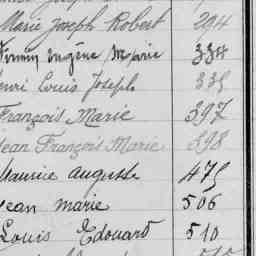 Marie Joseph Robert 294
Firmin Eugène Marie 334
Henri Louis Joseph 335
François Marie 397
Jean François Marie 398
Maurice Auguste 475
Jean Marie 506
Louis Edouard 510